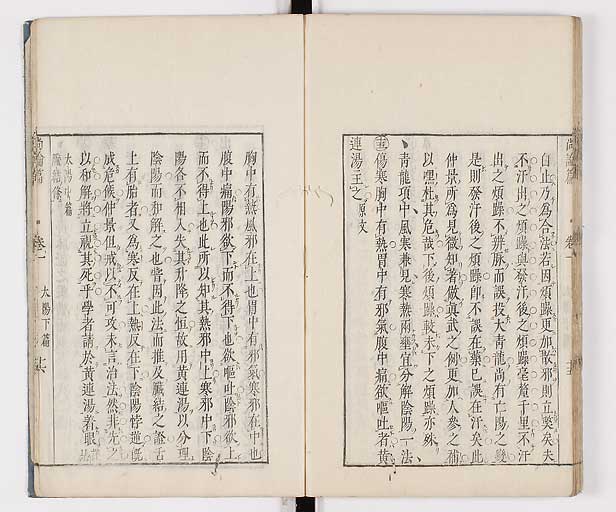 自止乃為合法若因煩躁更加散邪則立斃矣夫
不汗出之煩躁與發汗後之煩躁毫釐千里不汗
出之煩躁不辨脉而誤投大青龍尚有亡陽之變
是則發汗後之煩躁即不誤在藥已誤在汗矣此
仲景所為見微知著倣真武之例更加人參之補
以嘿杜其危哉下後煩躁較未下之煩躁亦殊
青龍項中風寒兼見寒熱兩壅宜分解陰陽一法
傷寒胸中有熱胃中有邪氣腹中痛欲嘔吐者黃
連湯主之原文
胸中有熱風邪在上也胃中有邪氣寒邪在中也
腹中痛陽邪欲下而不得下也欲嘔吐陰邪欲上
而不得上也此所以知其熱邪中上寒邪中下陰
陽各不相入失其升降之恒故用黃連湯以分理
陰陽而和解之也嘗因此法而推及臟結之證舌
上有胎者又為寒反在上熱反在下陰陽悖逆既
成危候仲景但戒以不可攻未言治法然非先之
以和解將立視其死乎學者請於黃連湯著眼
太陽中篇
尚論篇
卷一
太陽下篇